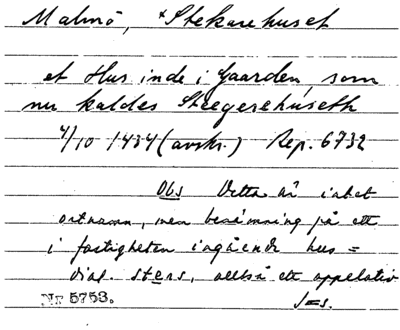 Malmö, *Stekarehuset
et Hus inde i Gaarden, som
nu kaldes Steegerehúseth
4/10 1434 (avskr.) Rep. 6732
Obs Detta är intet
ortnamn, men benämning på ett
i fastigheten ingående hus =
dial. sters, alltså ett appellativ
Nr 5753.